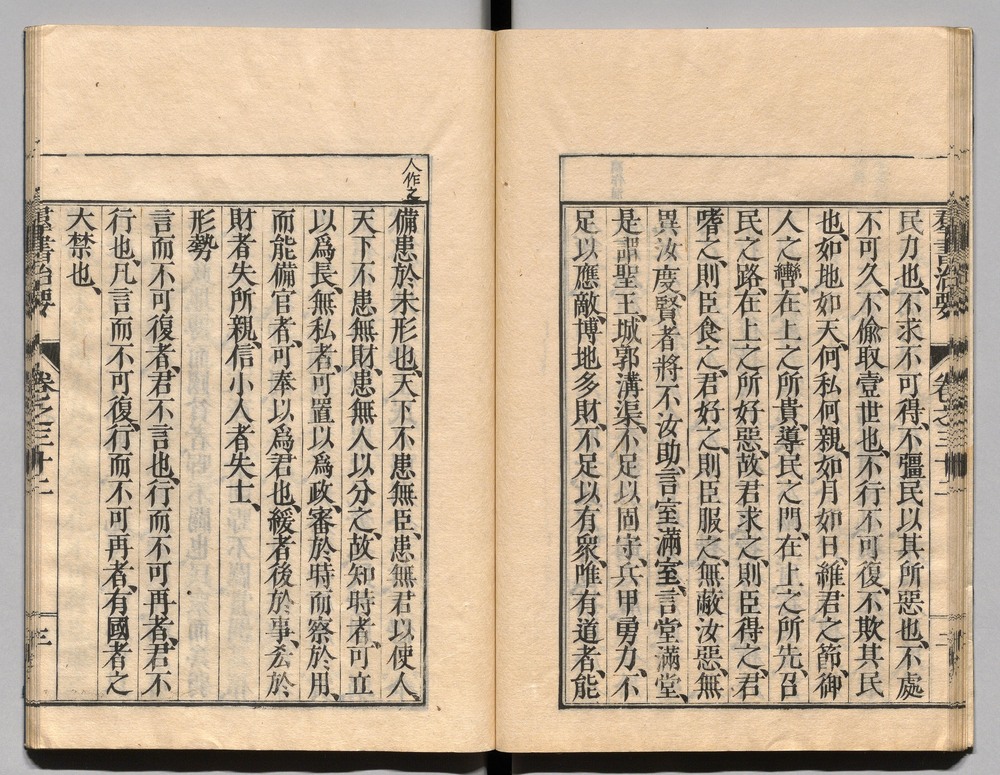 羣書治要 卷之三十二
民力也、不求不可得、不彊民以其所惡也、不處
不可久、不偷取壹世也、不行不可復、不欺其民
也、如地如天、何私何親、如月如日、維君之節、御
人之轡、在上之所貴、導民之門、在上之所先、召
民之路、在上之所好惡、故君求之、則臣得之、君
嗜之、則臣食之、君好之、則臣服之、無蔽汝惡、無
異汝度、賢者將不汝助、言室滿室、言堂滿堂、
是謂聖王、城郭溝渠、不足以固守、兵甲勇力、不
足以應敵、博地多財、不足以有衆、唯有道者、能
人作之
備患於未形也、天下不患無臣、患無君以使人、
天下不患無財、患無人以分之、故知時者、可立
以爲長、無私者、可置以爲政、審於時而察於用、
而能備官者、可奉以爲君也、緩者後於事、㳒於
財者失所親、信小人者失士、
形勢
言而不可復者、君不言也、行而不可再者、君不
行也、凡言而不可復、行而不可再者、有國者之
大禁也、
羣書治要 卷之三十二 三